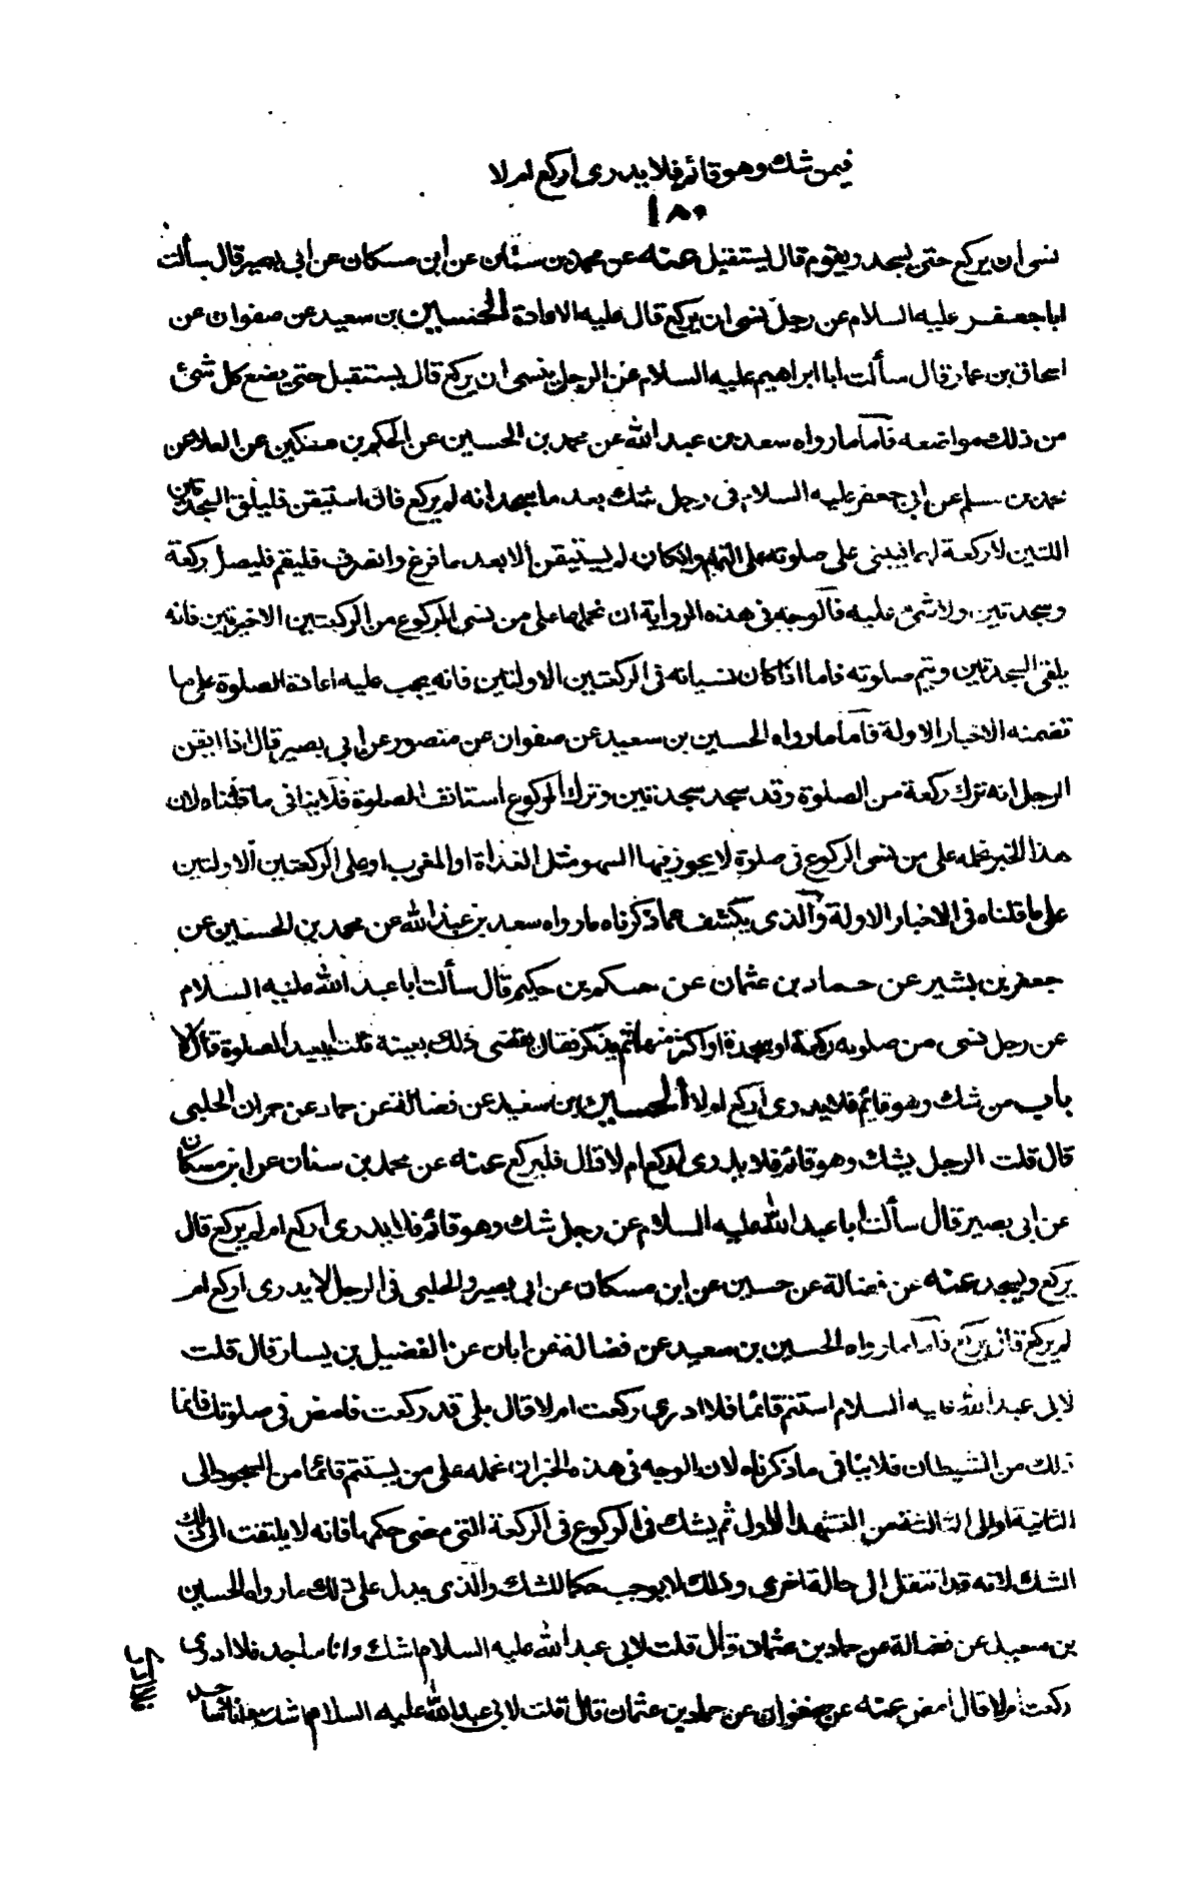 فيمن شك وهو قائم فلا يدرى اركع ام لا
١٨٠
نسى أن يركع حتى يسجد ويقوم قال يستقبل عنه عن محمد بن سنان عن ابن مسكان عن ابى بصير قال سألت
ابا جعفر عليه السلام عن رجل نسى ان يركع قال عليه الاعادة الحسين بن سعيد عن صفوان عن
اسحاق بن عمار قال سألت ابا ابراهيم عليه السلام عن الرجل ينسى ان يركع قال يستقبل حتى يضع كل شئ
من ذلك مواضعه فأما ما رواه سعد بن عبد الله عن محمد بن الحسين عن الحكم بن مسكين عن العلا عن
محمد بن مسلم عن ابى جعفر عليه السلام فى رجل شك بعد ما سجد انه لم يركع قال استيقن فليلق السجدتين
اللتين لا ركعة لهما فيبنى على صلوته على التمام وان كان لم يستيقن إلا بعد ما فرغ وانصرف فليقم فليصل ركعة
وسجدتين ولا شئ عليه فالوجه فى هذه الرواية ان نحملها على من نسى الركوع من الركعتين الاخيرتين فانه
يلقى السجدتين ويتم صلوته فاما اذا كان نسيانه فى الركعتين الاولتين فانه يجب عليه اعادة الصلوة على ما
تضمنه الاخبار الاولة فأما ما رواه الحسين بن سعيد عن صفوان عن منصور عن ابى بصير قال اذا ايقن
الرجل انه ترك ركعة من الصلوة وقد سجد سجدتين وترك الركوع استانف الصلوة فلا ينافى ما قلناه لان
هذا الخبر نحمله على من نسى الركوع فى صلوة لا يجوز فيها السهو مثل الغداة او المغرب او على الركعتين الاولتين
على ما قلناه فى الاخبار الاولة والذى يكشف عما ذكرناه ما رواه سعد بن عبد الله عن محمد بن الحسين عن
جعفر بن بشير عن حماد بن عثمان عن حكم بن حكيم قال سألت ابا عبد الله عليه السلام
عن رجل نسى من صلوته ركعة او سجدة او اكثر منها ثم يذكر فقال يقضى ذلك بعينه قلت ايعيد الصلوة قال لا
باب من شك وهو قايم فلا يدرى اركع ام لا الحسين بن سعيد عن فضالة عن حماد عن عمران الحلبى
قال قلت الرجل يشك وهو قائم فلا يدرى اركع ام لا قال فليركع عنه عن محمد بن سنان عن ابن مسكان
عن ابى بصير قال سألت ابا عبد الله عليه السلام عن رجل شك وهو قائم فلا يدرى اركع ام لم يركع قال
يركع ويسجد عنه عن فضالة عن حسين عن ابن مسكان عن ابى بصير والحلبى فى الرجل لا يدرى اركع ام
لم يركع قال يركع فأما ما رواه الحسين بن سعيد عن فضالة عن ابان عن الفضيل بن يسار قال قلت
لابى عبد الله عليه السلام استتم قائما فلا ادرى ركعت ام لا قال بلى قد ركعت فامض فى صلوتك فانما
ذلك من الشيطان فلا ينافى ما ذكرناه لان الوجه فى هذه الخبر ان نحمله على من يستتم قائما من السجود الى
الثانية او الى الثالثة من التشهد الاول ثم يشك فى الركوع فى الركعة التى مضى حكمها فانه لا يلتفت الى ذلك
الشك لانه قد انتقل الى حالة اخرى وذلك لا يوجب حكما للشك والذى يدل على ذلك ما رواه الحسين
بن سعيد عن فضالة عن حماد بن عثمان قال قلت لابى عبد الله عليه السلام اشك وانا ساجد فلا ادرى
ركعت ام لا قال امض عنه عن صفوان عن حماد بن عثمان قال قلت لابى عبد الله عليه السلام اشك وانا ساجد